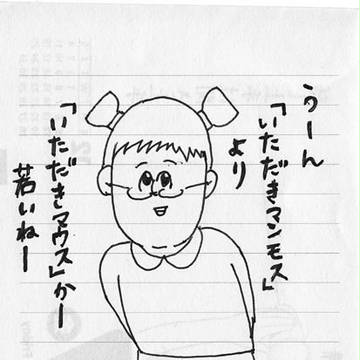 うーん
「いただきマンモス」
より
「いただきマウス」かー
若いねー